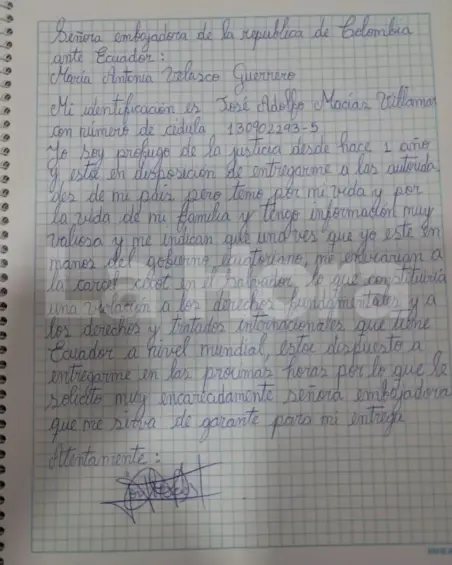 Señora embajadora de la republica de Colombia
ante Ecuador:
María Antonia Velasco Guerrero
Mi identificación es José Adolfo Macías Villamar
con numero de cédula 130902293-5
Yo soy profugo de la justicia desde hace 1 año
y estoe en disposición de entregarme a las autorida
des de mi país pero temo por mi vida y por
la vida de mi familia y tengo información muy
valiosa y me indican que una ves que yo este en
manos del gobierno ecuatoriano, me enviarian a
la carcel cecot en el Salvador, lo que constituiria
una violación a los derechos fundamentales y a
los derechos y tratados internacionales que tiene
Ecuador a nivel mundial, estoe dispuesto a
entregarme en las proximas horas por lo que le
solicito muy encarecidamente señora embajadora
que me sirva de garante para mi entrega
Atentamente: